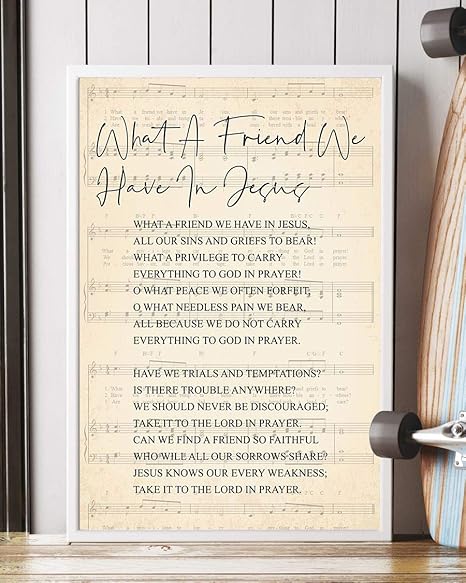 What A Friend We
Have In Jesus
WHAT A FRIEND WE HAVE IN JESUS,
ALL OUR SINS AND GRIEFS TO BEAR!
WHAT A PRIVILEGE TO CARRY
EVERYTHING TO GOD IN PRAYER!
O WHAT PEACE WE OFTEN FORFEIT,
O WHAT NEEDLESS PAIN WE BEAR,
ALL BECAUSE WE DO NOT CARRY
EVERYTHING TO GOD IN PRAYER.
HAVE WE TRIALS AND TEMPTATIONS?
IS THERE TROUBLE ANYWHERE?
WE SHOULD NEVER BE DISCOURAGED;
TAKE IT TO THE LORD IN PRAYER.
CAN WE FIND A FRIEND SO FAITHFUL
WHO WILL ALL OUR SORROWS SHARE?
JESUS KNOWS OUR EVERY WEAKNESS;
TAKE IT TO THE LORD IN PRAYER.